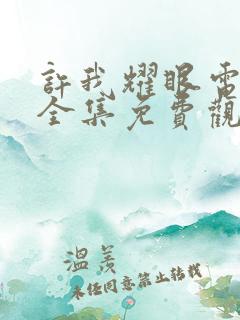 許我耀眼電
全集免費觀
溫羨
未经同意禁止转载